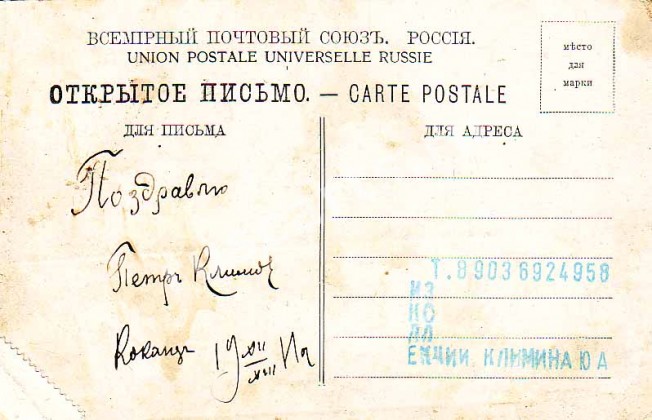 ВСЕМІРНЫЙ ПОЧТОВЫЙ СОЮЗЪ. РОССІЯ.
UNION POSTALE UNIVERSELLE RUSSIE
мѣсто
для
марки
ОТКРЫТОЕ ПИСЬМО. — CARTE POSTALE
ДЛЯ ПИСЬМА
ДЛЯ АДРЕСА
Поздравляю
Петръ Климов
Кокандъ 19 XII
Т.89036924958
ИЗ
КО
ЛЛ
ЕКЦИИ КЛИМИНА Ю А